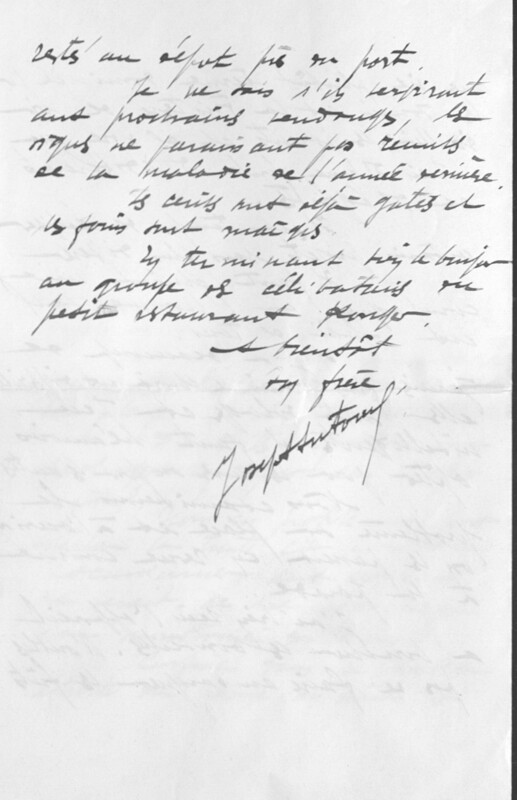 resté au dépôt près du port.
Je ne sais s'ils serviront
aux prochains vendanges, les
vignes ne paraissant pas remis
de la maladie de l'année dernière.
Les cerises sont déjà gatées et
les foins sont maigres
En terminant bonjour
au groupe de célibataires du
petit restaurant
A bientôt
Ton frère,
Joseph Antony